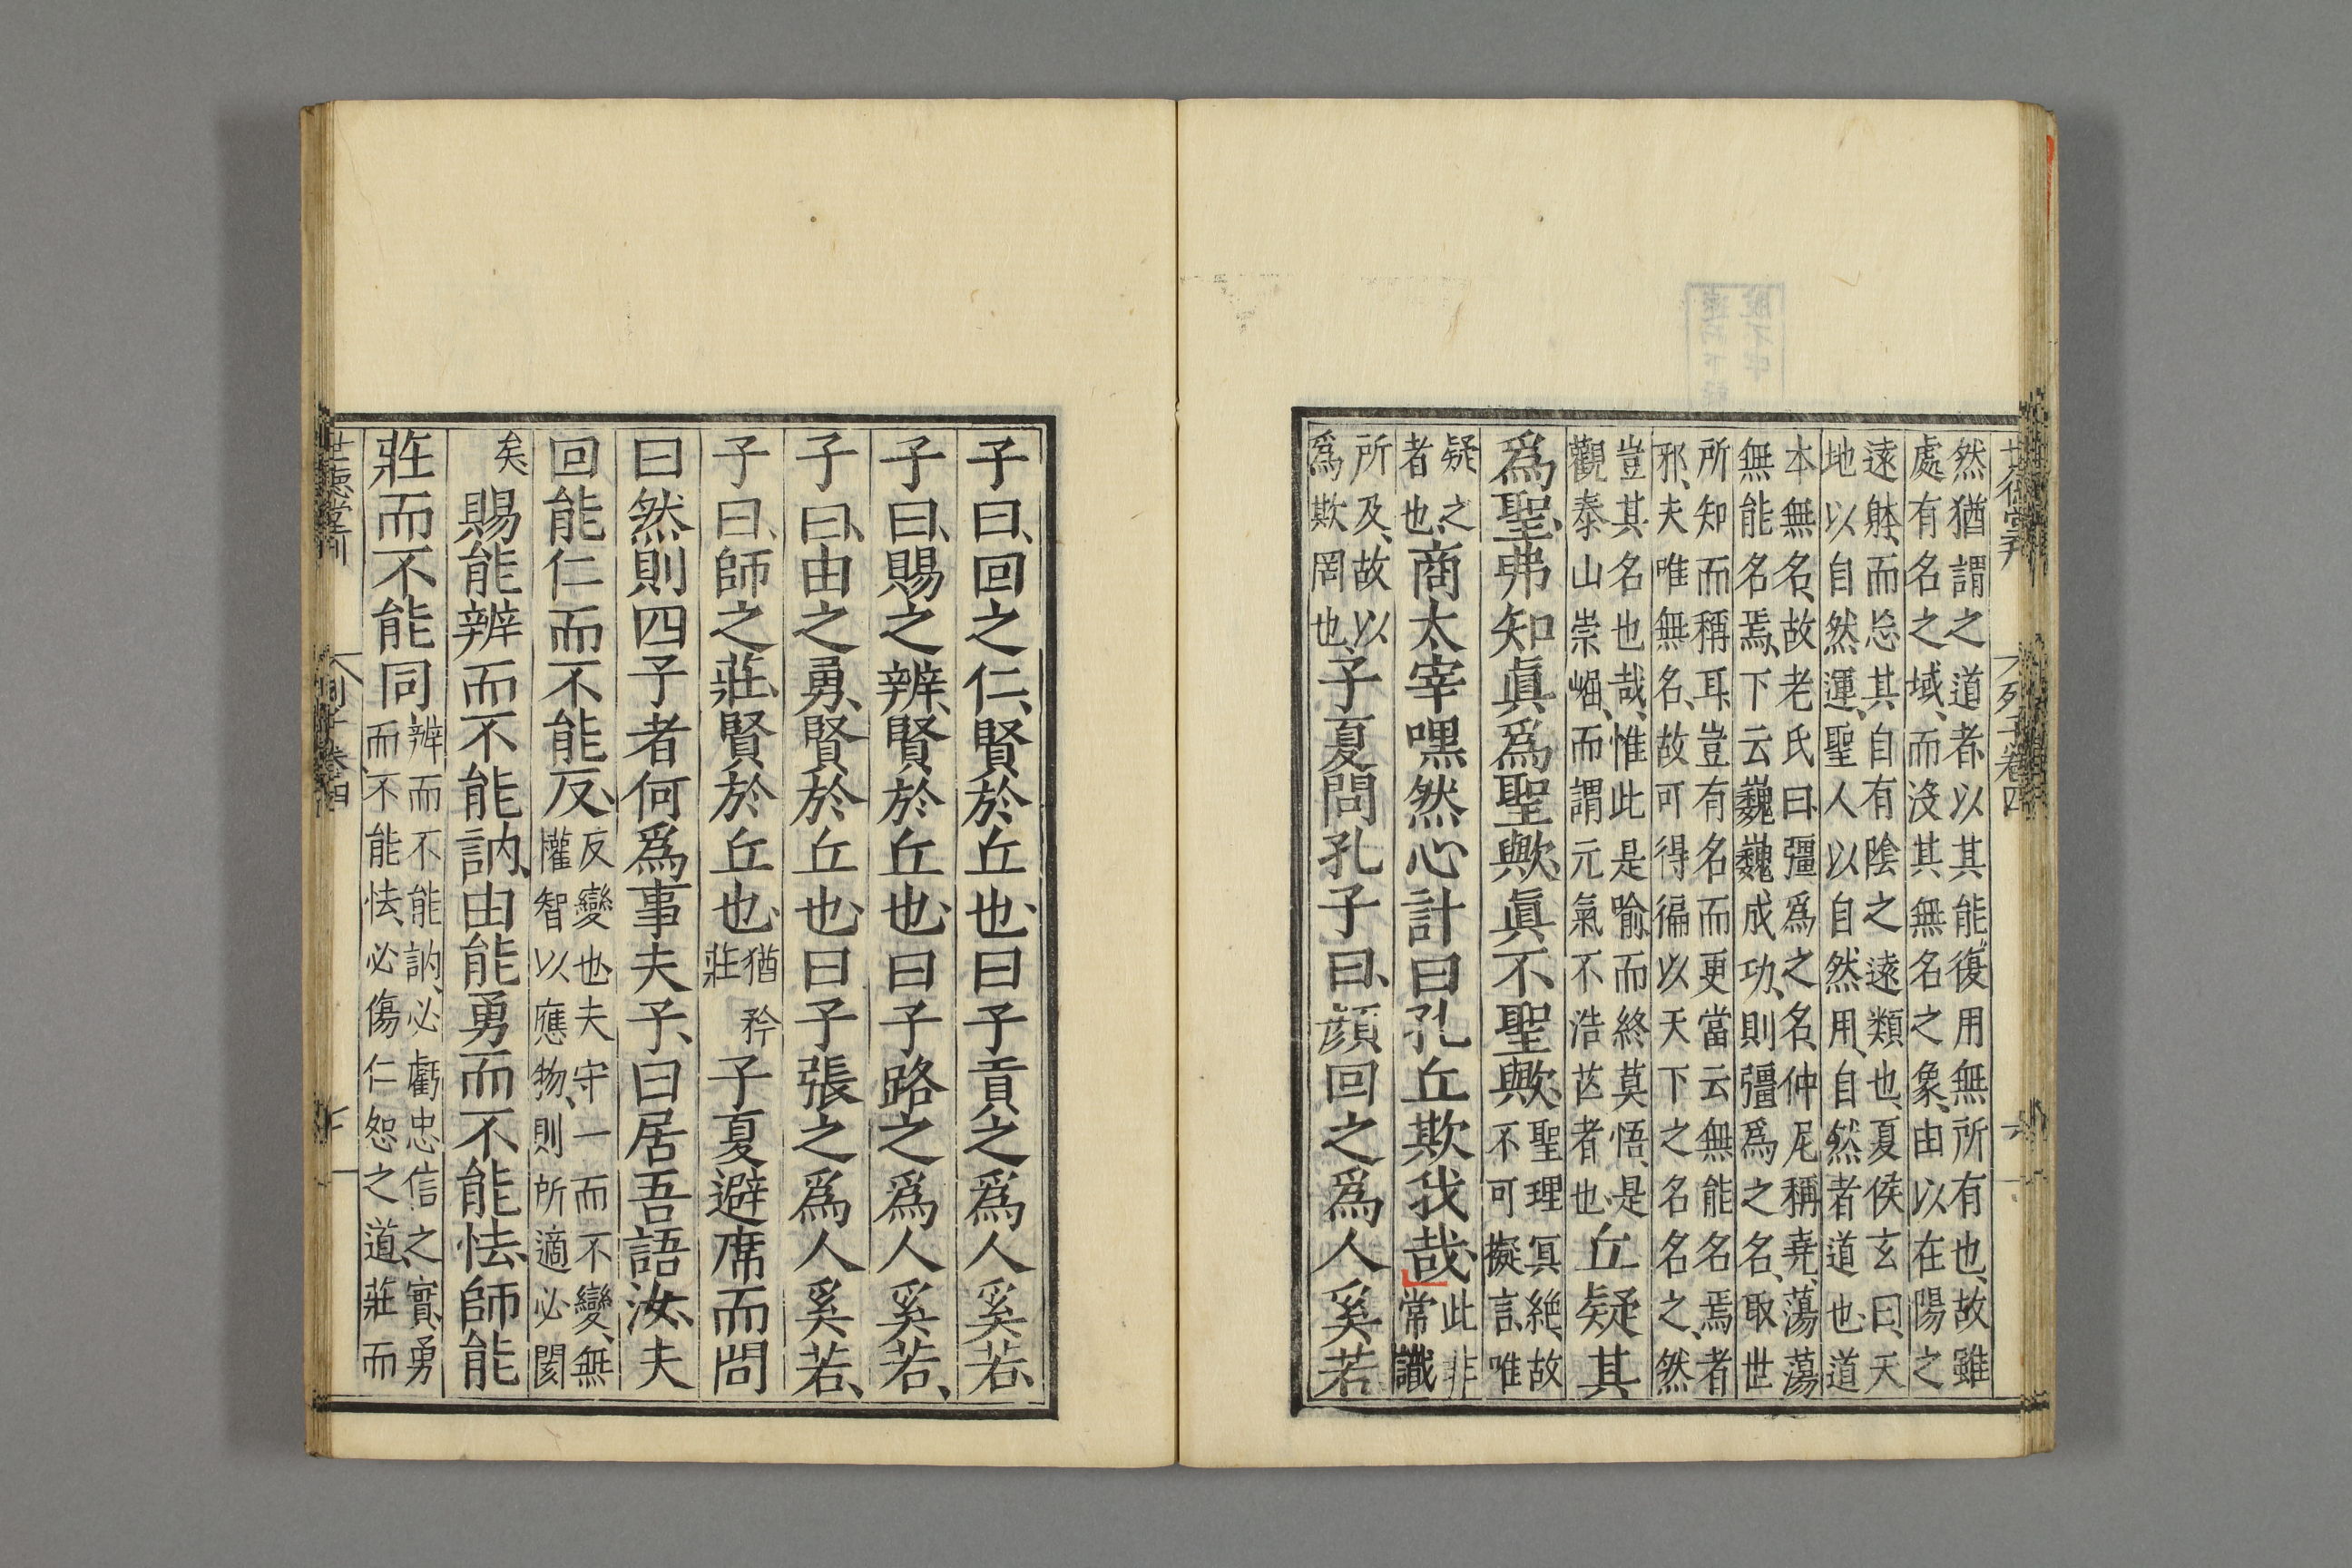 然猶謂之道者、以其能復用無所有也、故雖
處有名之域、而沒其無名之象、由以在陽之
遠躰、而忘其自有陰之遠類也、夏侯玄曰、天
地以自然運、聖人以自然用、自然者道也、道
本無名、故老氏曰、彊爲之名、仲尼稱堯、蕩蕩
無能名焉、下云巍巍成功、則彊爲之名、取世
所知而稱耳、豈有名而更當云無能名焉、者
邪、夫唯無名、故可得徧以天下之名名之、然
豈其名也哉、惟此是喻、而終莫悟、是
觀泰山崇崛、而謂元氣不浩芒者也、
丘疑其
爲聖、弗知眞爲聖歟、眞不聖歟、
聖理冥絶、故
不可擬言、唯
疑之
者也、
商太宰嘿然心計曰、孔丘欺我哉、
此非
常識
所及、故以
爲欺罔也、
子夏問孔子曰、顔回之爲人奚若、
子曰、回之仁、賢於丘也、曰子貢之爲人奚若、
子曰、賜之辨、賢於丘也、曰子路之爲人奚若、
子曰、由之勇、賢於丘也、曰子張之爲人奚若、
子曰、師之莊、賢於丘也、
猶矜
莊
子夏避席而問
曰然則四子者何爲事夫子、曰居吾語汝、夫
回能仁而不能反、
反變也、夫守一而不變、無
權智以應物、則所適必閡
矣、
賜能辨而不能訥、由能勇而不能怯、師能
莊而不能同
辨而不能訥、必虧忠信之實、勇
而不能怯、必傷仁恕之道、莊而
世德堂刊
列子卷四
六
七